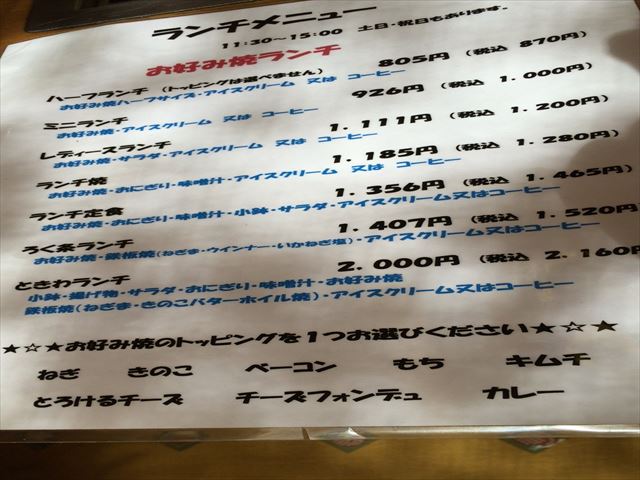 ランチメニュー
11:30~15:00 土日・祝日もあります。
お好み焼ランチ
ハーフランチ (トッピングは選べません) 805円 (税込 870円)
お好み焼ハーフサイズ・アイスクリーム 又は コーヒー
ミニランチ 926円 (税込 1.000円)
お好み焼・アイスクリーム 又は コーヒー
レディースランチ 1.111円 (税込 1.200円)
お好み焼・サラダ・アイスクリーム 又は コーヒー
ランチ焼 1.185円 (税込 1.280円)
お好み焼・おにぎり・味噌汁・アイスクリーム 又は コーヒー
ランチ定食 1.356円 (税込 1.465円)
お好み焼・おにぎり・味噌汁・小鉢・サラダ・アイスクリーム又はコーヒー
ろく条ランチ 1.407円 (税込 1.520円)
お好み焼・鉄板焼(ねぎま・ウインナー・いかねぎ塩)・アイスクリーム又はコーヒー
ときわランチ 2.000円 (税込 2.160円
小鉢・揚げ物・サラダ・おにぎり・味噌汁・お好み焼
鉄板焼(ねぎま・きのこバターホイル焼)・アイスクリーム又はコーヒー
★☆★お好み焼のトッピングを1つお選びください★☆★
ねぎ きのこ ベーコン もち キムチ
とろけるチーズ チーズフォンデュ カレー